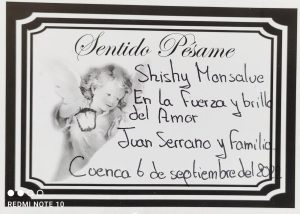 Sentido Pésame
Shishy Monsalve
En la Fuerza y brillo
del Amor
Juan Serrano y Familia.
Cuenca 6 de septiembre del
REDMI NOTE 10